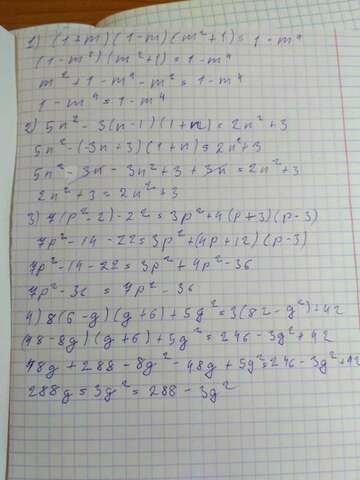 1) (1+m)(1-m)(m²+1)=1-m⁴
(1-m²)(m²+1)=1-m⁴
m²+1-m⁴-m²=1-m⁴
1-m⁴=1-m⁴
2) 5n²-3(n-1)(1+n)=2n²+3
5n²-(-3n+3)(1+n)=2n²+3
5n²-3n-3n²+3+3n=2n²+3
2n²+3=2n²+3
3) 7(p²-2)-22=3p²+4(p+3)(p-3)
7p²-14-22=3p²+(4p+12)(p-3)
7p²-14-22=3p²+4p²-36
7p²-36=7p²-36
4) 8(6-g)(g+6)+5g²=3(82-g²)+42
(48-8g)(g+6)+5g²=246-3g²+42
48g+288-8g²-48g+5g²=246-3g²+42
288g=3g²=288-3g²